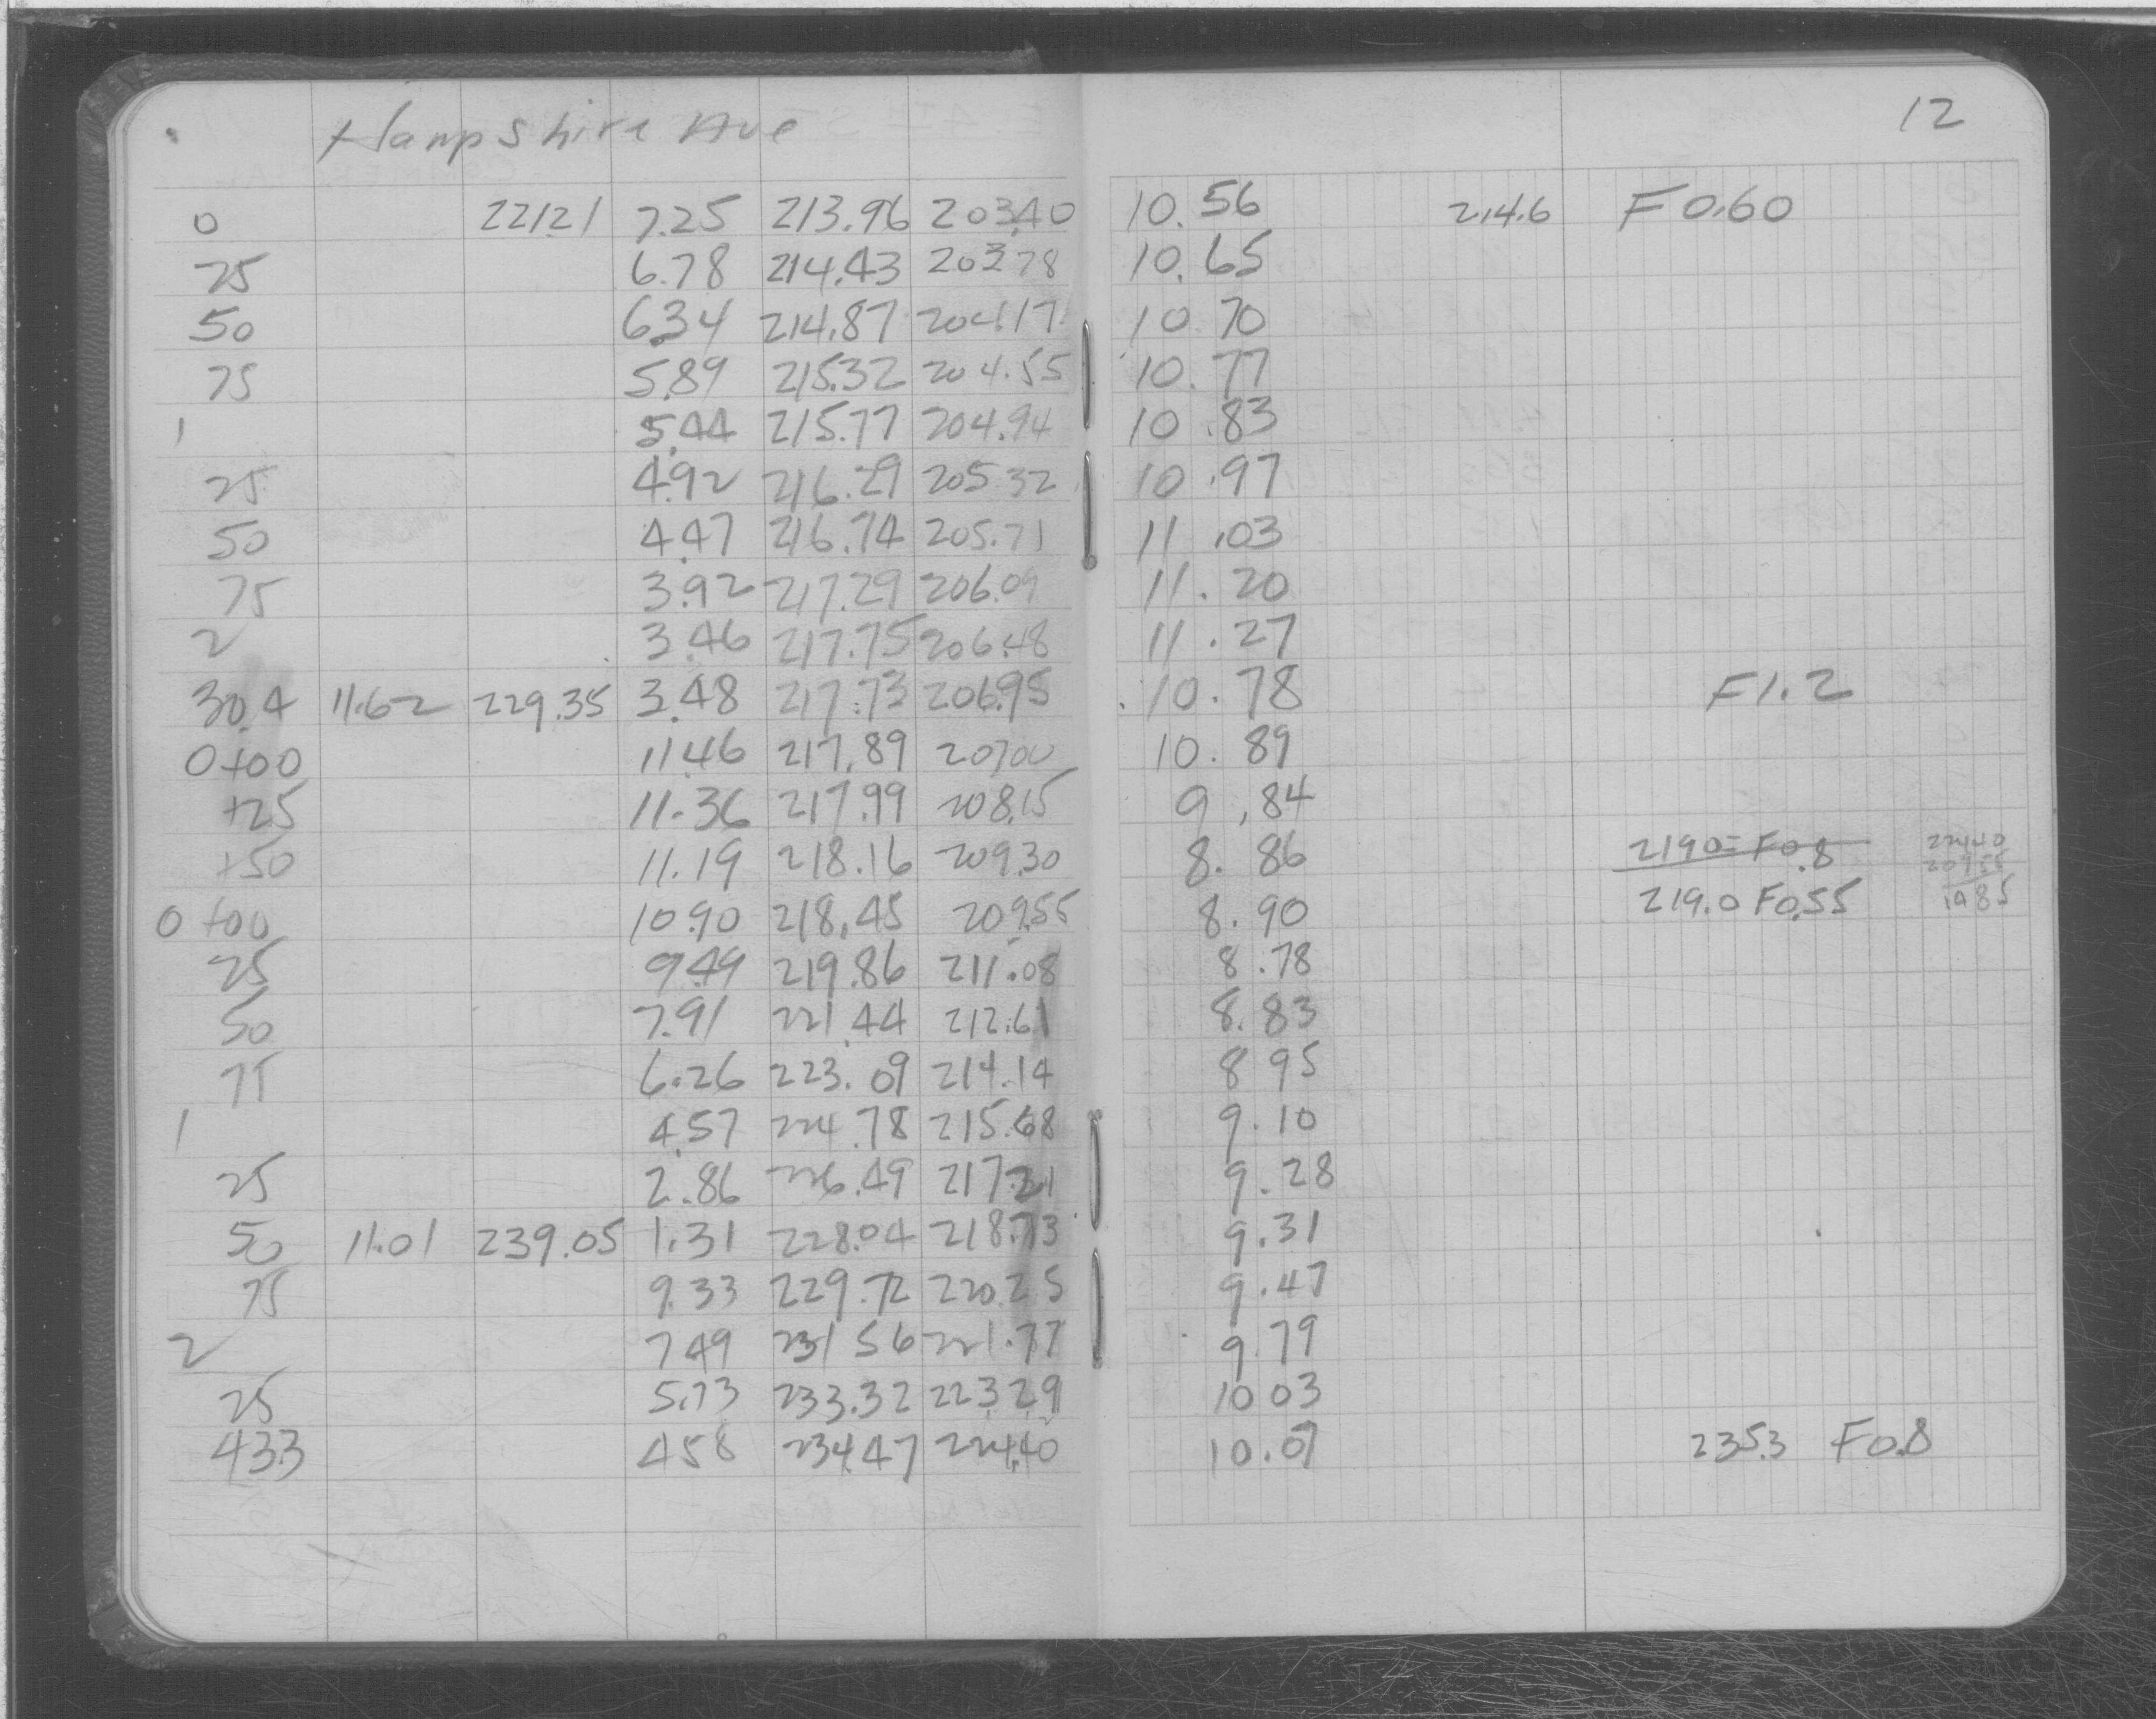 12
Hampshire Ave
0 221.21 7.25 213.96 203.40 10.56 214.6 F 0.60
25 6.78 214.43 203.78 10.65
50 6.34 214.87 204.17 10.70
75 5.89 215.32 204.55 10.77
1 5.44 215.77 204.94 10.83
25 4.92 216.29 205.32 10.97
50 4.47 216.74 205.71 11.03
75 3.92 217.29 206.09 11.20
2 3.46 217.75 206.48 11.27
30.4 11.62 229.35 3.48 217.73 206.95 10.78 F1.2
0+00 11.46 217.89 207.00 10.89
+25 11.36 217.99 208.15 9.84
+50 11.19 218.16 209.30 8.86 219.0= F0.8 224.40
209.55
0+00 10.90 218.45 209.55 8.90 219.0 F0.55 1485
25 9.49 219.86 211.08 8.78
50 7.91 221.44 212.61 8.83
75 6.26 223.09 214.14 8 95
1 4.57 224.78 215.68 9.10
25 2.86 226.49 217.21 9.28
50 11.01 239.05 1.31 228.04 218.73 9.31
75 9.33 229.72 220.25 9.47
2 7.49 231 56 221.77 9.79
25 5.73 233.32 223.29 10 03
43.3 4.58 234.47 224.40 10.07 235.3 F0.8